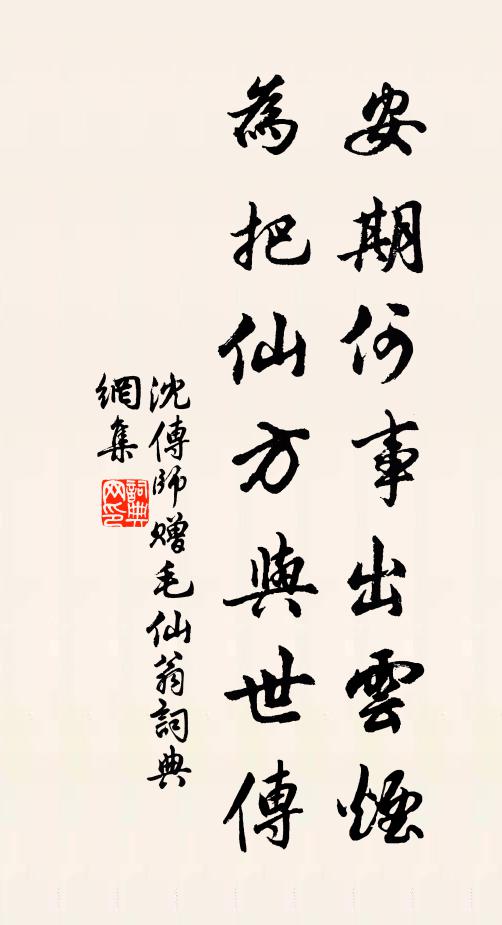 安期何事出雲煙
為把仙方與世傳
沈傳師贈毛仙翁詞典
網集
詞典
网印